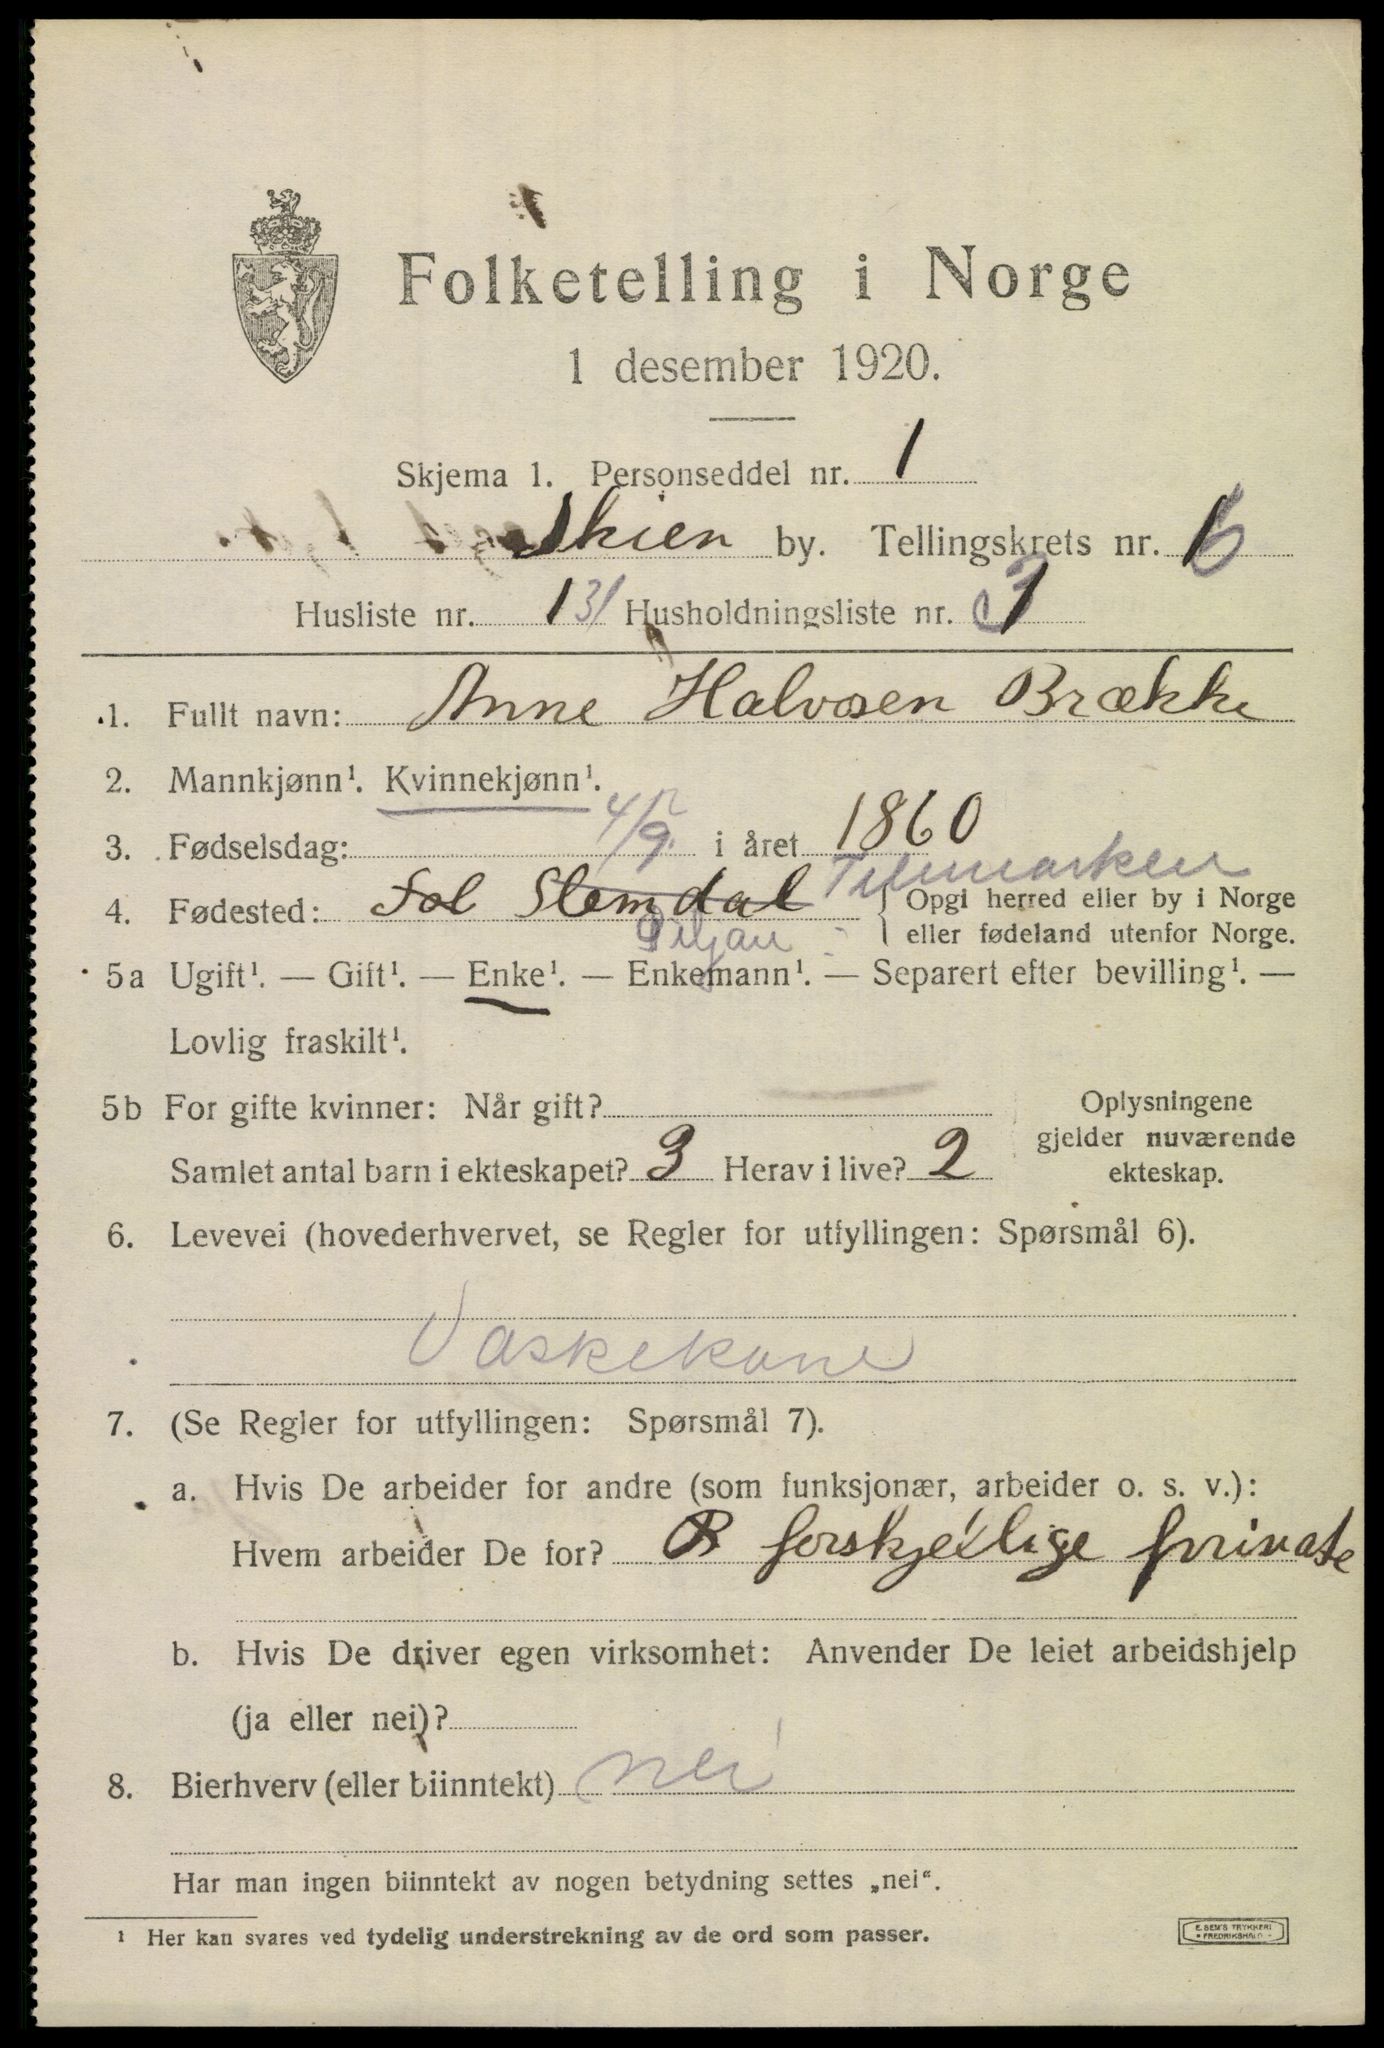 Folketelling i Norge
1 desember 1920.
Skjema 1. Personseddel nr. 1
Skien by. Tellingskrets nr. 16
Husliste nr. 1 31 Husholdningsliste nr. 1
1. Fullt navn: Anne Halvosen Brække
2. Mannkjønn¹. Kvinnekjønn¹.
3. Fødselsdag: 4/9 i året 1860
4. Fødested: Sol Slemdal Telemarken { Opgi herred eller by i Norge
eller fødeland utenfor Norge.
5a Ugift¹. — Gift¹. — Enke¹. — Enkemann¹. — Separert efter bevilling¹. —
Lovlig fraskilt¹.
5b For gifte kvinner: Når gift? Oplysningene
gjelder nuværende
Samlet antal barn i ekteskapet? 3 Herav i live? 2 ekteskap.
6. Levevei (hovederhvervet, se Regler for utfyllingen: Spørsmål 6).
Vaskekone
7. (Se Regler for utfyllingen: Spørsmål 7).
a. Hvis De arbeider for andre (som funksjonær, arbeider o. s. v.):
Hvem arbeider De for? forskjellige private
b. Hvis De driver egen virksomhet: Anvender De leiet arbeidshjelp
(ja eller nei)?
8. Bierhverv (eller biinntekt) nei
Har man ingen biinntekt av nogen betydning settes „nei“.
¹ Her kan svares ved tydelig understrekning av de ord som passer.
E. SEM'S TRYKKERI
FREDRIKSHALD